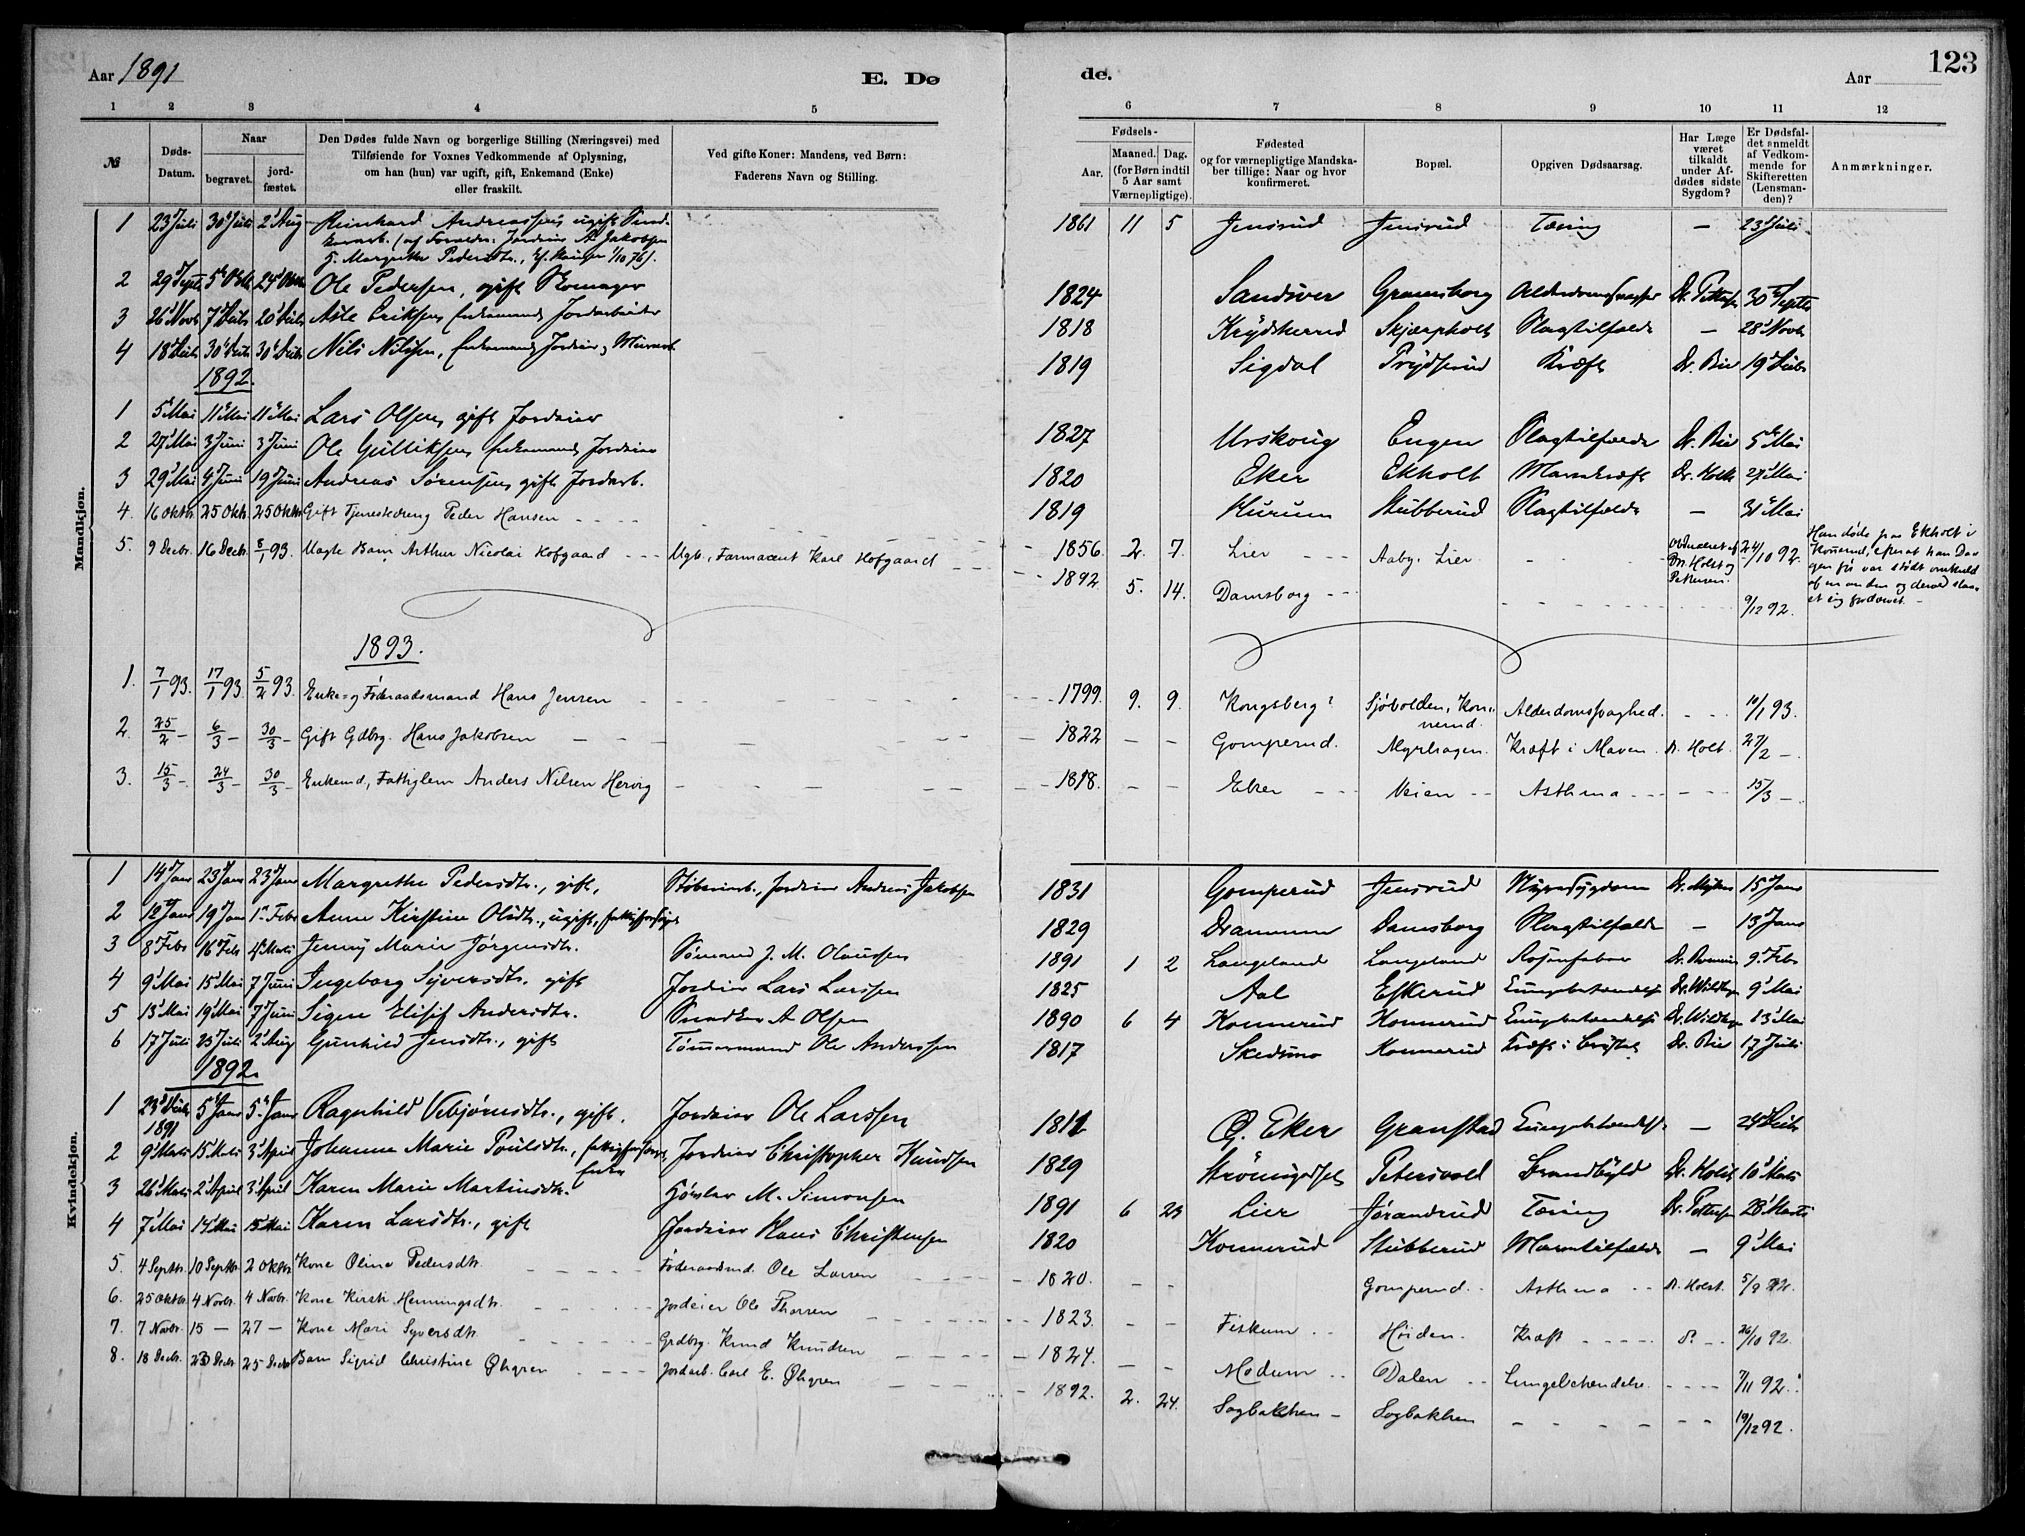 Aar 1891 E. Døde. Aar 123
1 2 3 4 5 6 7 8 9 10 11 12
№ Døds-Datum. Naar begravet. jord-fæstet. Den Dødes fulde Navn og borgerlige Stilling (Næringsvei) med Tilføiende for Voxnes Vedkommende af Oplysning, om han (hun) var ugift, gift, Enkemand (Enke) eller fraskilt. Ved gifte Koner: Mandens, ved Børn: Faderens Navn og Stilling. Fødsels- Aar. Maaned. Dag. (for Børn indtil 5 Aar samt Værnepligtige). Fødested og for værnepligtige Mandskaber tillige: Naar og hvor konfirmeret. Bopæl. Opgiven Dødsaarsag. Har Læge været tilkaldt under Afdødes sidste Sygdom? Er Dødsfaldet anmeldt af Vedkommende for Skifteretten (Lensmanden)? Anmærkninger.
Mandkjøn.
1 23 Juli 30 Juli 2 Aug Reinhard Andreassen ugift 1861 11 5 Jensrud Jensrud Tæring — 23 Juli
(af Foræld: Jordeier A. Jakobsen
Margrethe Pedersdtr.,
2 29 Septr 5 Oktr 24 Oktr Ole Pedersen, gift Skomager 1824 Sandsver Gramsborg Alderdomssvaghed Dr. Pettersen 30 Septr
3 26 Novbr 7 Decbr 20 Decbr Asle Eriksen Enkemand Jordarbeider 1818 Krydsherred Skjærpholt Slagtilfælde — 28 Novbr
4 18 Decbr 30 Decbr 30 Decbr Nils Nilssen, Enkemand, Jordeier, Murarb. 1819 Sigdal Prydserud Kræft Dr. Bie 19 Decbr
1892.
1 5 Mai 11 Mai 11 Mai Lars Olsen, gift Jordeier 1827 Urskoug Engen Slagtilfælde Dr. Bie 5 Mai
2 27 Mai 3 Juni 3 Juni Ole Gulliksen Enkemand, Jordeier 1820 Eker Ekholt Mavekræft Dr. Holst 27 Mai
3 29 Mai 4 Juni 19 Juni Andreas Sørensen, gift Jordarb. 1819 Hurum Stubberud Slagtilfælde — 31 Mai
4. 16 Oktbr. 25 Oktr. 25 Oktbr Gift Tjenestedreng Peder Hansen - - - 1856. 2. 7. Lier - - - Aaby, Lier - Obduceret af Dr. Holst og Pettersen. 24/10 92. Han døde paa Ekholt i Konnerud, efter at han Dagen før var stødt omkuld af en anden og derved slaaet sig fordærvet. -
5. 9 Decbr. 16 Decb. 8/1 93. Uægte Barn Arthur Nicolai Hofgaard - - - Ugb., Farmaceut Karl Hofgaard - - - 1892. 5. 14. Damsborg - - - 9/12 92.
1893.
1. 7/1 93. 17/1 93. 5/2 93. Enke- og Føderaadsmand Hans Jensen - 1799. 9. 9. Kongsberg? Sjøvolden, Konnerud. Alderdomssvaghed. - - - 10/1 93.
2. 25/2 - 6/3 - 30/3 - Gift Gdbrg. Hans Jakobsen - - 1822 - - Gomperud. Myrhagen. Kræft i Maven. Dr. Holst. 27/2 -
3. 15/3 - 24/3 - 30/3 - Enkemd, Fattiglem Anders Nilsen Hervig - 1818. - - Eker - - - Veien - - Asthma - - - 15/3 -
Kvindekjøn.
1 14 Janr 23 Janr 23 Janr Margrethe Pedersdtr., gift, Støberiarb., Jordeier Andreas Jakobsen 1831 Gomperud Jensrud Nyresygdom 15 Janr
2 12 Janr 19 Janr 1 Febr Anne Kirstine Olsdtr., ugift, fattigforsørget 1829 Drammen Damsborg Slagtilfælde — 13 Janr
3 8 Febr 16 Febr 4 Marts Jenny Marie Jørgensdtr. Sømand J. M. Olaussen 1891 1 2 Langeland Langeland Rosenfeber 9 Febr
4 9 Mai 15 Mai 7 Juni Ingeborg Syversdtr. gift Jordeier Lars Larssen 1825 Aal Eskerud Lungebetændelse Dr. Wildhagen 9 Mai
5 13 Mai 19 Mai 7 Juni Signe Elisif Andersdtr. Snedker A. Olsen 1890 6 4 Konnerud Konnerud Lungebetændelse Dr. Wildhagen 13 Mai
6 17 Juli 23 Juli 2 Aug Gunhild Jensdtr., gift Tømmermand Ole Anderssen 1817 Skedsmo Konnerud Kræft i Brystet Dr. Bie 17 Juli
1892.
1 23 Decbr 1891 5 Janr 5 Janr Ragnhild Vebjørnsdtr., gift. Jordeier Ole Larssen 1812 Ø. Eker Granstad Lungebetændelse — 24 Decbr
2 9 Marts 15 Marts 3 April Johanne Marie Poulsdtr., fattigforsørget Enke Jordeier Christopher Knudsen 1829 Strömsgodset Petersvold Brandbyld Dr. Holst 10 Marts
3 26 Marts 2 April 3 April Karen Marie Martinsdtr. M. Simonsen 1891 6 23 Lier Jørandrud Tæring Dr. Pettersen 28 Marts
4 7 Mai 14 Mai 15 Mai Karen Larsdtr., gift Jordeier Hans Christensen 1820 Konnerud Stubberud Mavetilfælde — 9 Mai
5. 4 Septbr. 10 Septbr 2 Oktbr Kone Oline Pedersdtr. - - - Føderaadsmd. Ole Larsen - - - 1820. - - Gomperud. - Asthma - - Dr. Holst. 5/9 92.
6. 25 Oktbr. 4 Novbr. 4 Novbr. Kone Kirsti Henningsdtr. - - - Jordeier Ole Thorsen - - - 1823. - - Fiskum - - Høiden. Kræft - - - - 26/10 92.
7. 7 Novbr. 15 — 27 — Kone Mari Syversdtr. - - - Grdbrg. Knud Knudsen - - - 1824. - - Modum - - Dalen - - Lungebetændelse. - - - 7/11 92.
8. 18 Decbr. 23 Decbr 25 Decbr Barn Sigrid Christine Øhgren - - - Jordarb. Carl E. Øhgren - - - 1892. 2. 24. Sogbakken - Sogbakken - - - 19/12 92.